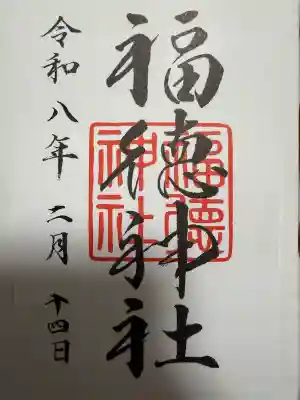 福徳神社
福徳神社
令和八年二月十四日